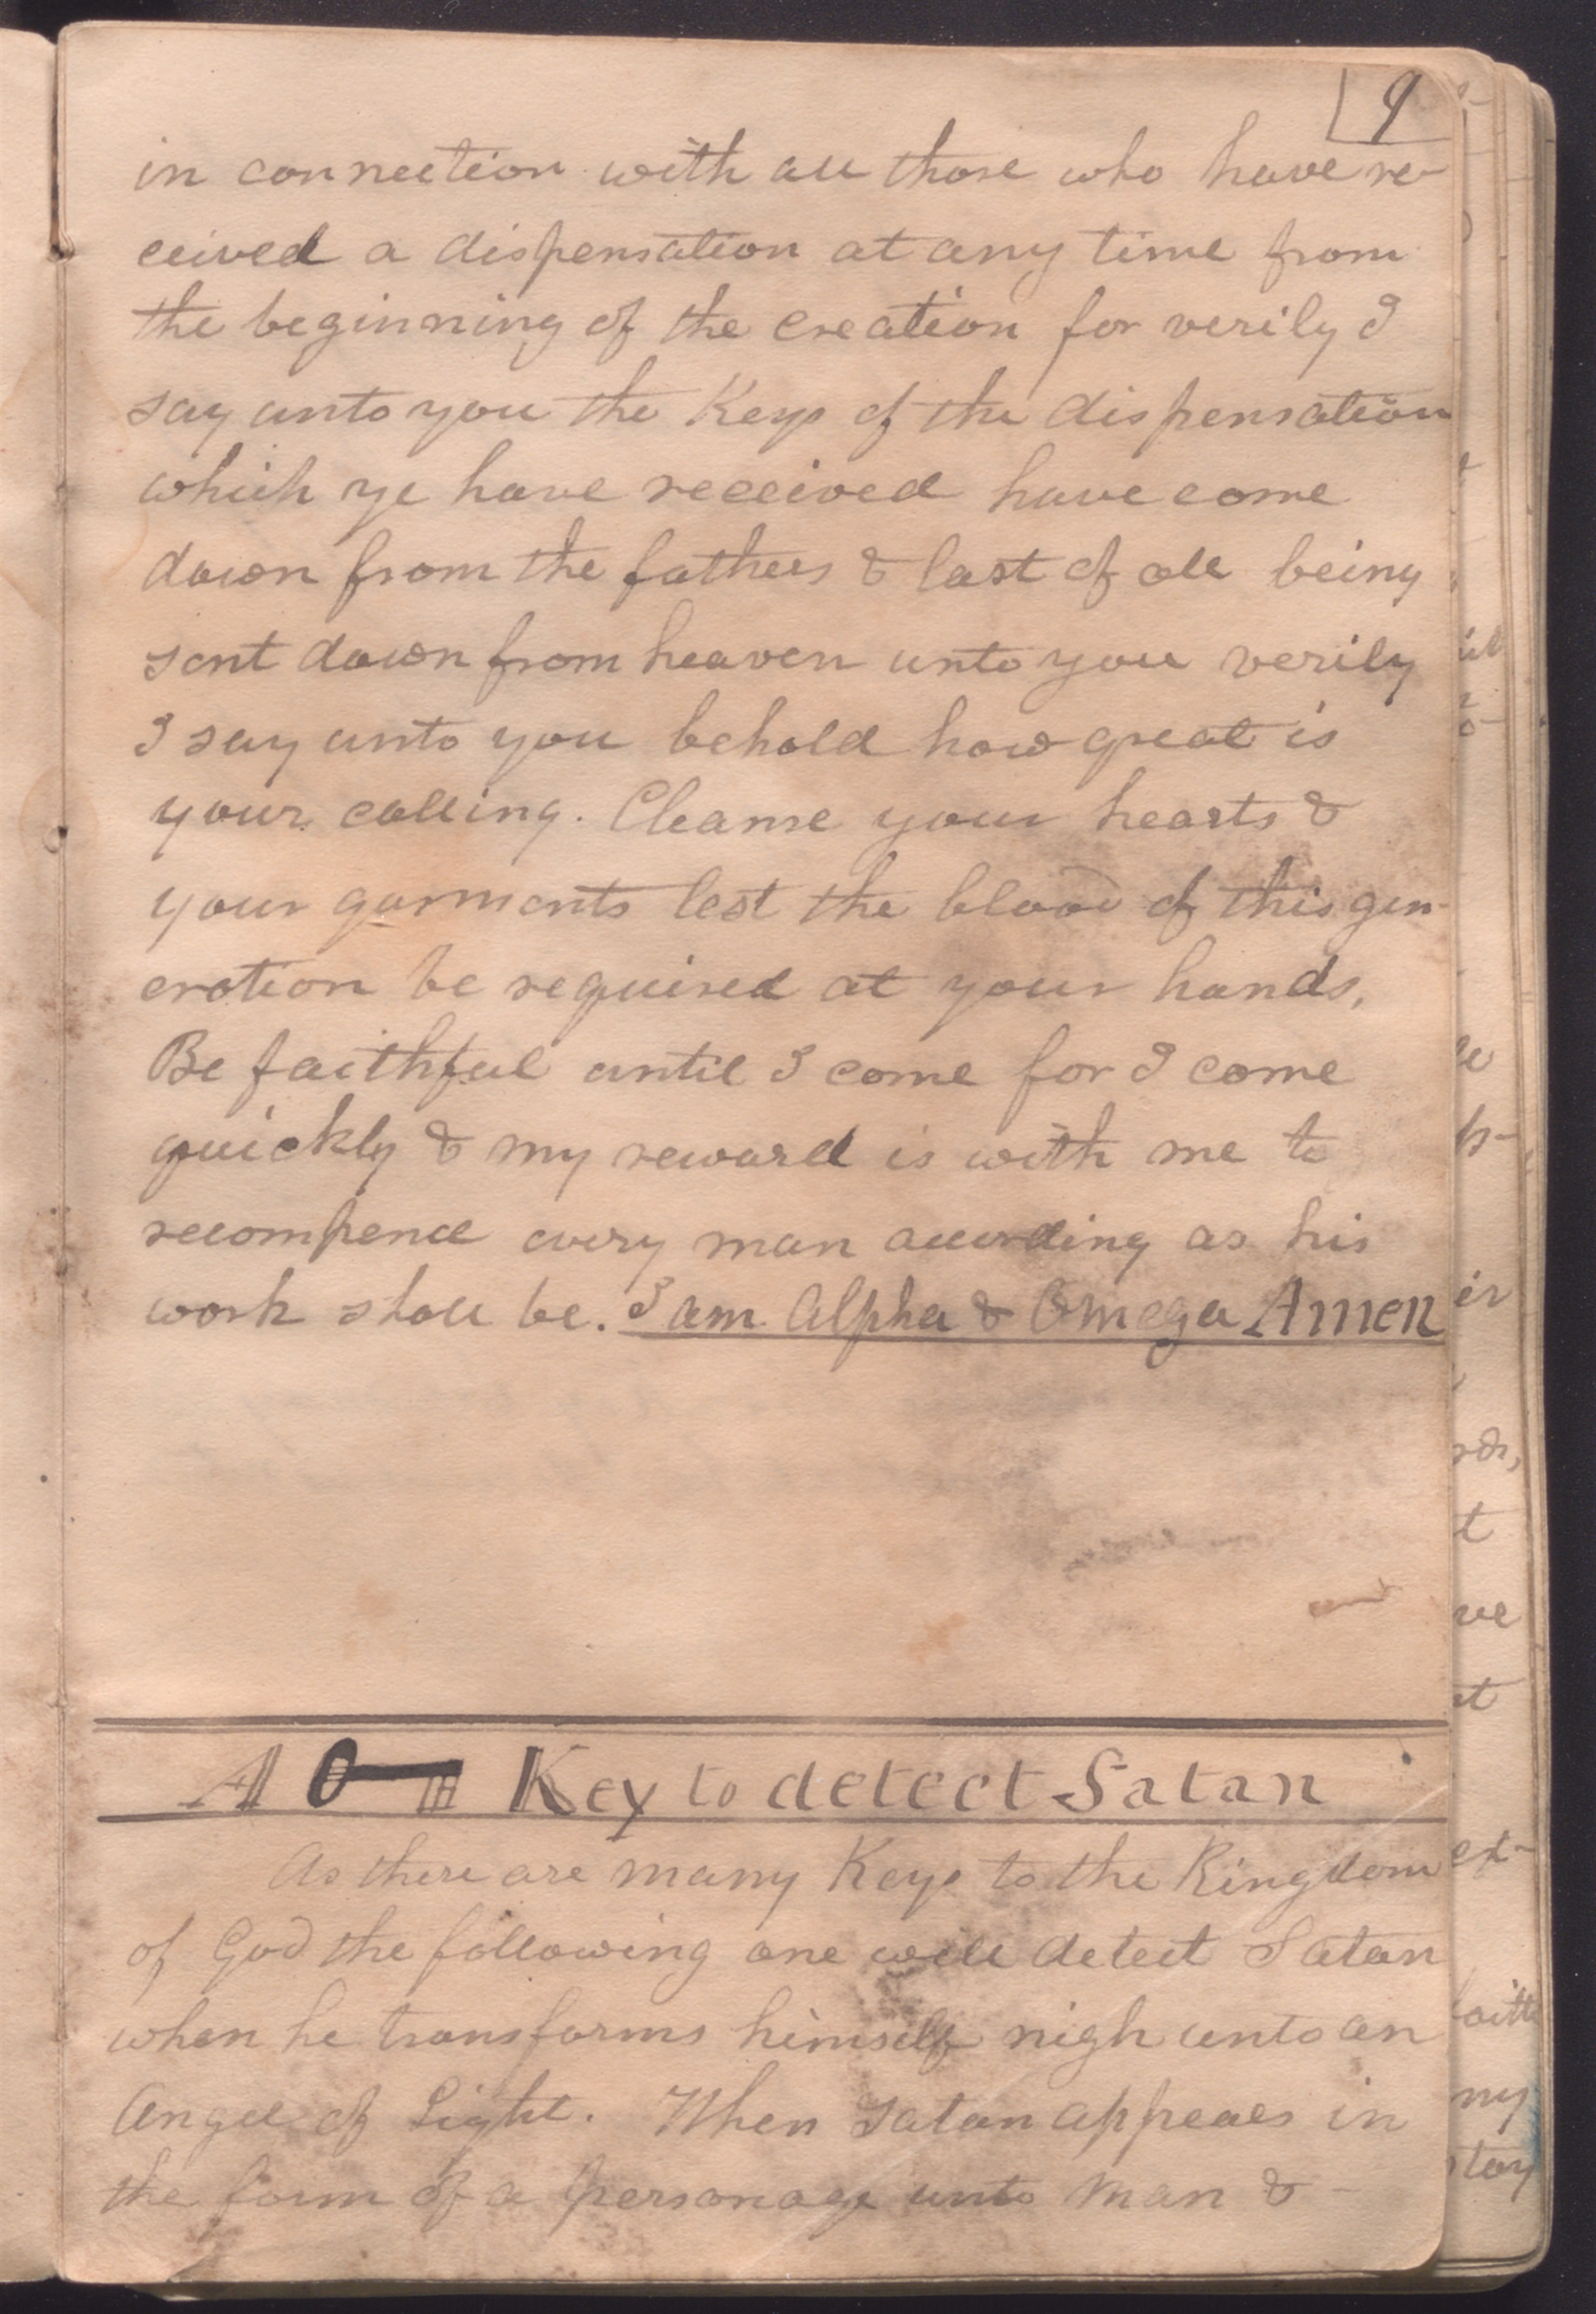 9
in connection with all those who have re-
ceived a dispensation at any time from
the beginning of the creation for verily I
say unto you the Keys of the dispensation
which ye have received have come
down from the fathers & last of all being
sent down from heaven unto you verily
I say unto you behold how great is
your calling. Cleanse your hearts &
your garments lest the blood of this gen-
eration be required at your hands,
Be faithful until I come for I come
quickly & my reward is with me to
recompence every man according as his
work shall be. I am Alpha & Omega Amen
A Key to detect Satan
As there are many Keys to the Kingdom
of God the following one will detect Satan
when he transforms himself nigh unto an
Angel of Light. When Satan appears in
the form of a personage unto man &